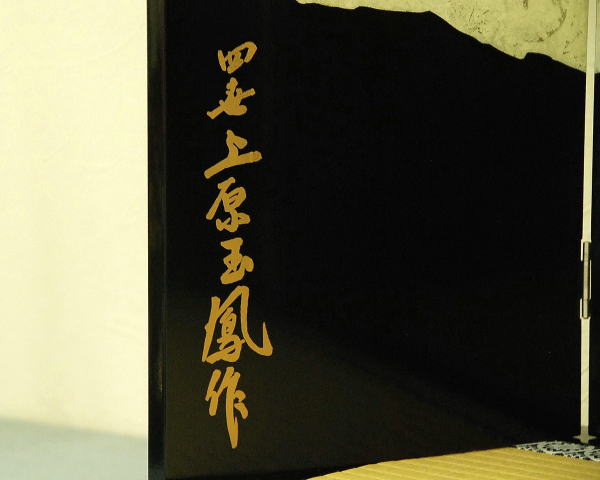 四世上原玉鳳作